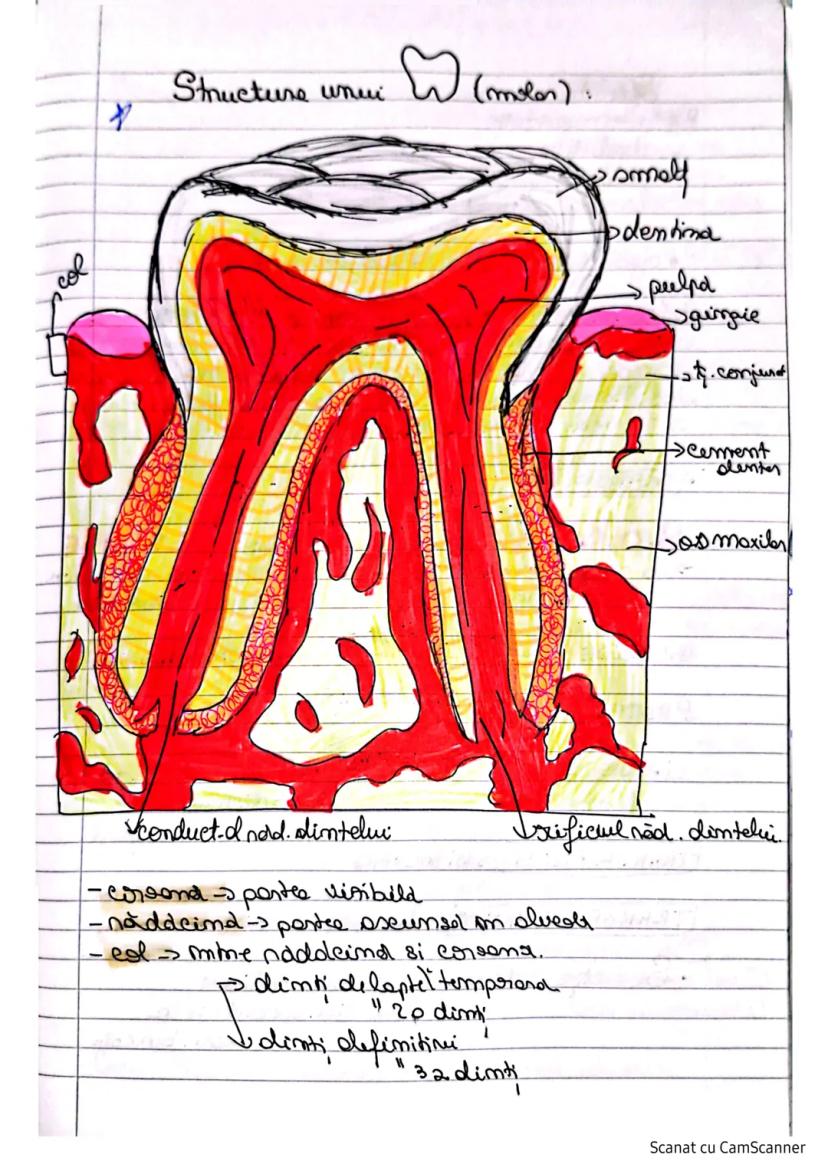 Structura unui (molar):
smalț
dentină
col
pulpă
gingie
ț. conjunct
cement
dentar
os maxilar
conductul răd. dintelui
orificiul răd. dintelui.
- coroană -> partea vizibilă
- rădăcină -> partea ascunsă în alveolă
- col -> între rădăcină și coroană.
-> dinți de lapte\ temporară
" 20 dinți
-> dinți definitivi
" 32 dinți
Scanat cu CamScanner